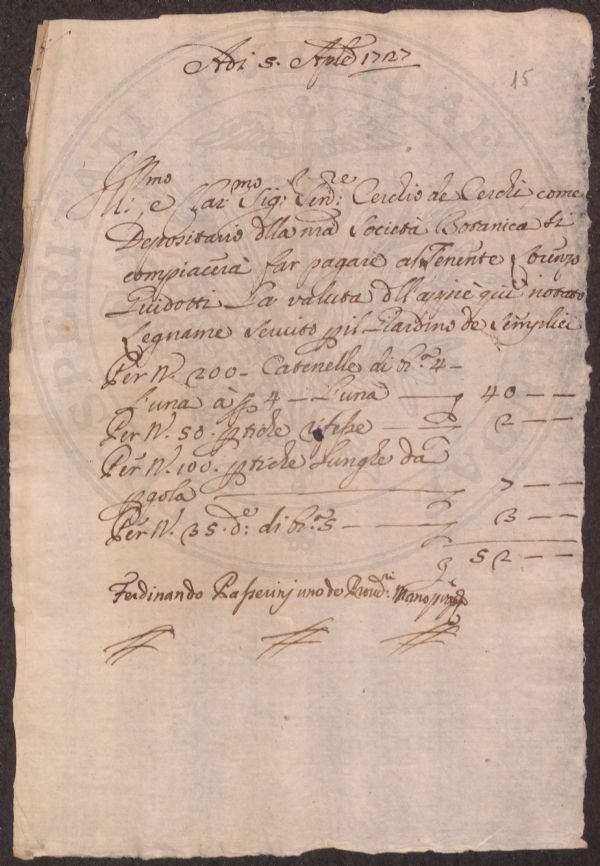 Adi 5. Aple 1727
15
Ill:mo e Clar:mo Sig:re Sen:re Cerchio de Cerchi come
Depositario dlla nra Società Botanica si
compiacerà far pagare al Tenente Lorenzo
Guidotti La valuta dll appiè qui notato
Legname Servito p il Giardino de Semplici
Per N. 200 – Catenelle di br.a 4 –
L'una à p 4 – L'una — 40 – –
Per N. 50. ptiche — 2 – –
Per N. 100. ptiche Lunghe da
pgola — 7 – –
Per N. 35. d.e: di br.a 5 – — 3 – –
52 – –
Ferdinando Passerini uno de Proud:ri mano pp